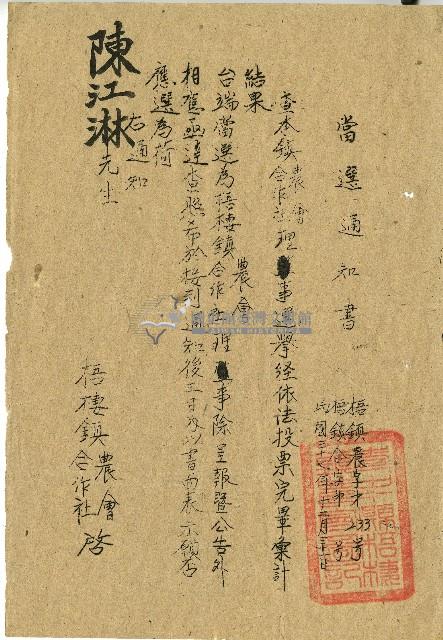 當選通知書
梧鎮農字才233号
梧鎮合字才 号
民國三十七年十二月二十一日
查本鎮農會合作社理事選舉经依法投票完畢彙計
結果
台端當選為梧棲鎮農會合作社理事除呈報暨公告外
相應函達查照希於接到通知後五日內以書面表示願否
應選為荷
右通知
陳江淋先生
梧棲鎮農會合作社啓
國史館臺灣文獻館
TAIWAN HISTORICA